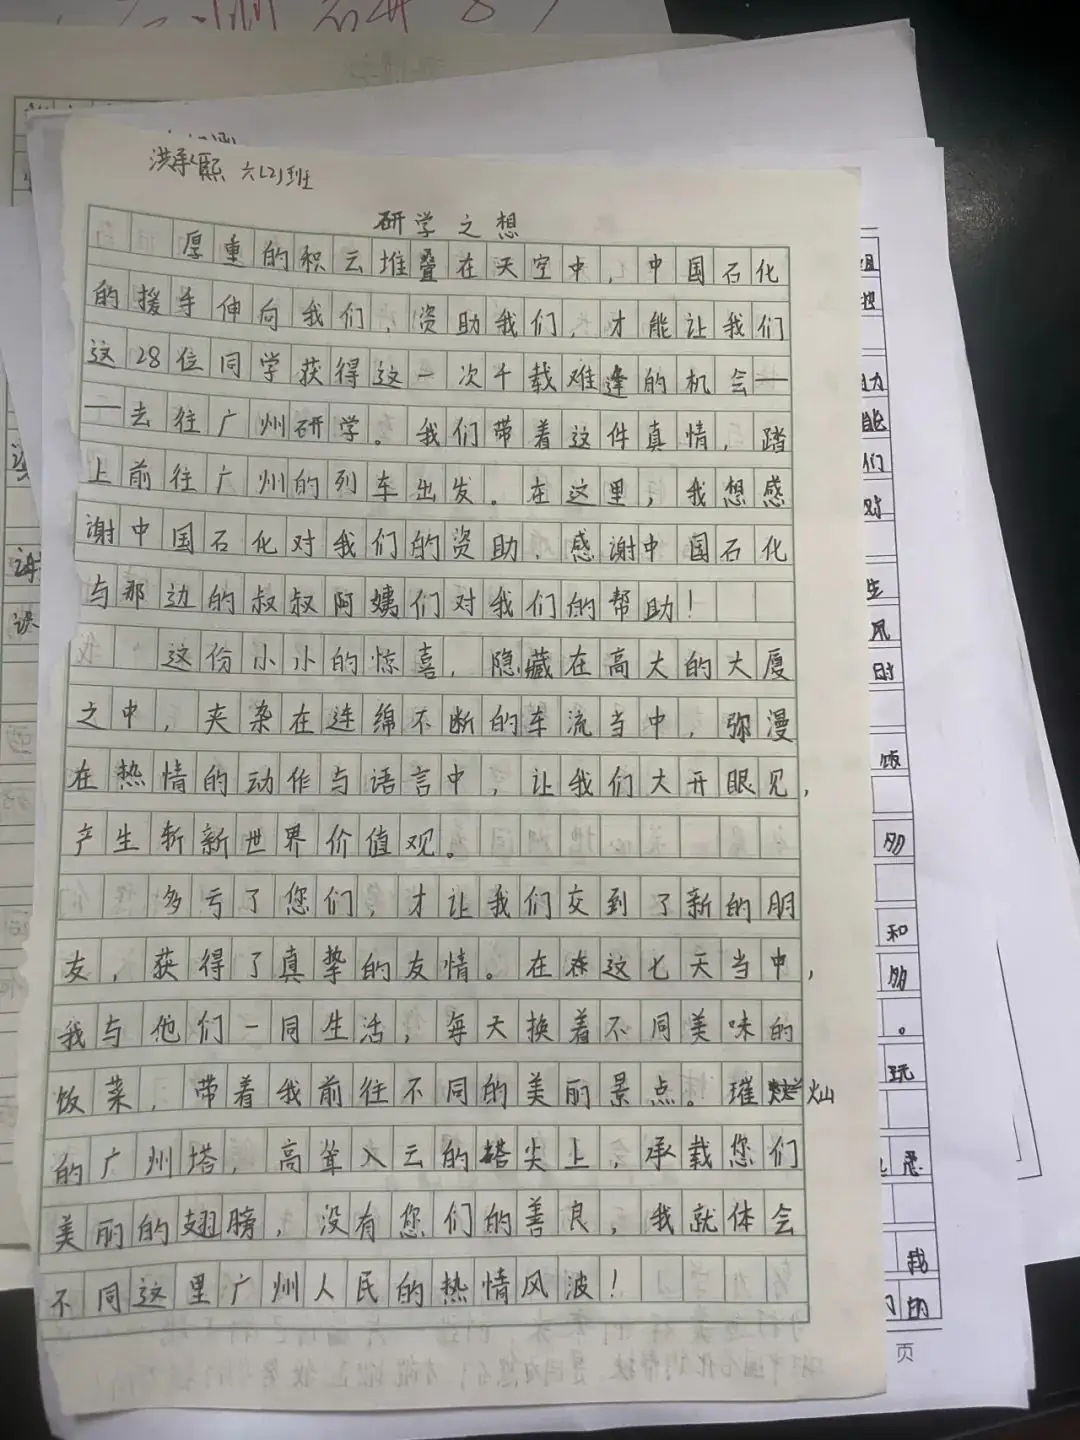 洪承熙 六(2)班
研学之想
厚重的积云堆叠在天空中，中国石化
的援手伸向我们，资助我们，才能让我们
这28位同学获得这一次千载难逢的机会—
—去往广州研学。我们带着这件真情，踏
上前往广州的列车出发。在这里，我想感
谢中国石化对我们的资助，感谢中国石化
与那边的叔叔阿姨们对我们的帮助！
这份小小的惊喜，隐藏在高大的大厦
之中，夹杂在连绵不断的车流当中，弥漫
在热情的动作与语言中，让我们大开眼见，
产生斩新世界价值观。
多亏了您们，才让我们交到了新的朋
友，获得了真挚的友情。在这七天当中，
我与他们一同生活，每天换着不同美味的
饭菜，带着我前往不同的美丽景点。璀灿
的广州塔，高耸入云的塔尖上，承载您们
美丽的翅膀，没有您们的善良，我就体会
不同这里广州人民的热情风波！
页